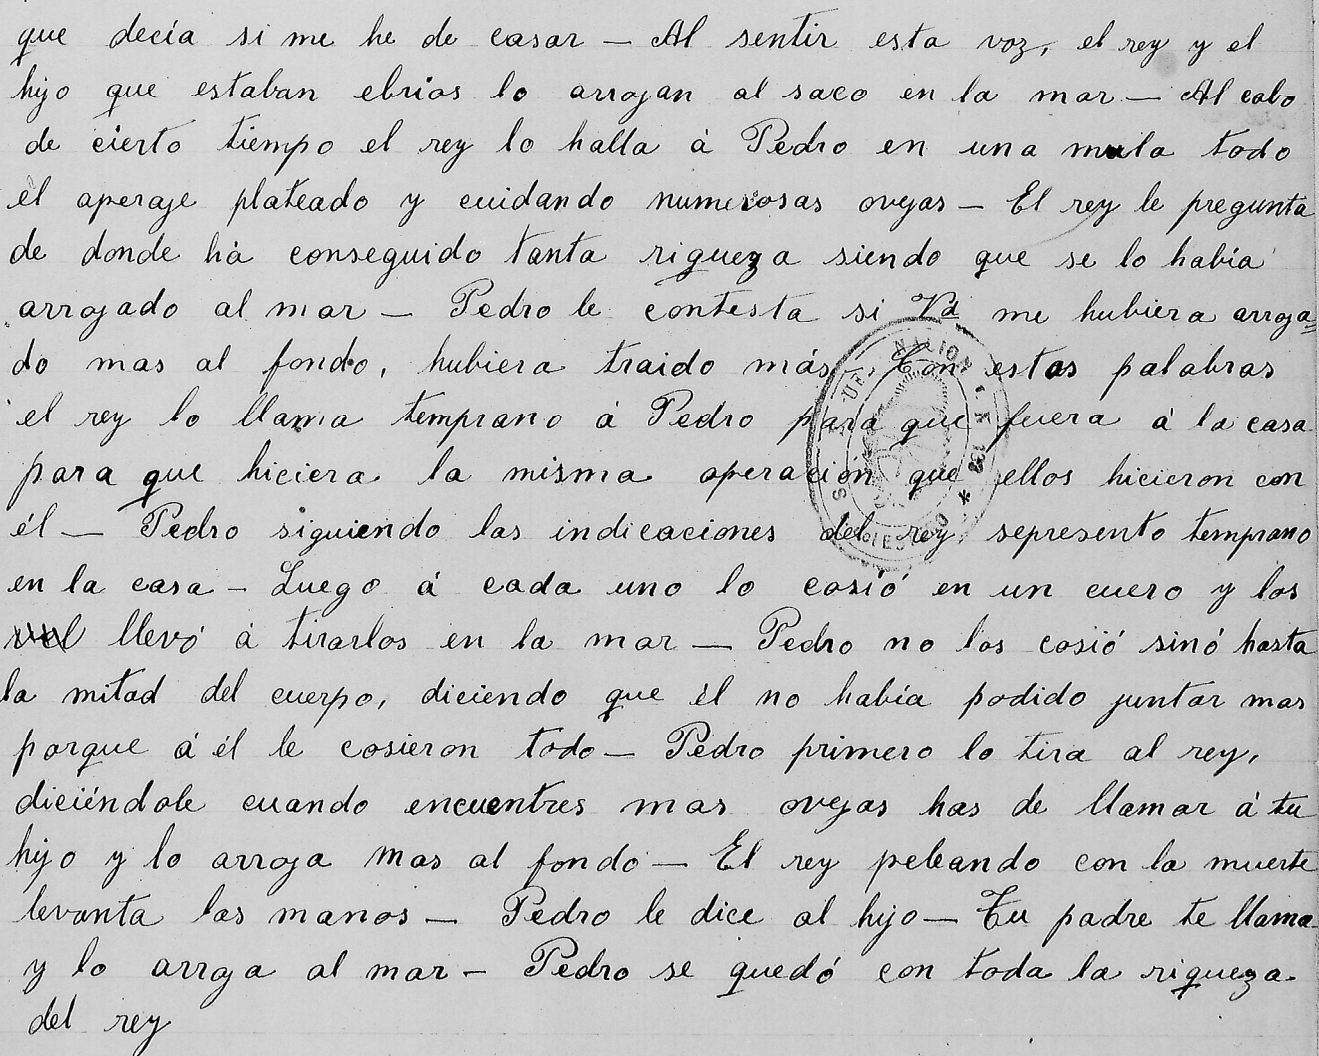 que decía si me he de casar — Al sentir esta voz, el rey y el
hijo que estaban ebrios lo arrojan al saco en la mar — Al cabo
de cierto tiempo el rey lo halla á Pedro en una mula todo
el aperaje plateado y cuidando numerosas ovejas — El rey le pregunta
de donde há conseguido tanta riqueza siendo que se lo había
arrojado al mar — Pedro le contesta si Vd me hubiera arroja=
do mas al fondo, hubiera traido más —. Con estas palabras
el rey lo llama temprano á Pedro para que fuera á la casa
para que hiciera la misma operación que ellos hicieron con
él — Pedro siguiendo las indicaciones del rey, se presento temprano
en la casa — Luego á cada uno lo cosió en un cuero y los
llevó á tirarlos en la mar — Pedro no los cosió sinó hasta
la mitad del cuerpo, diciendo que él no había podido juntar mas
porque á él le cosieron todo — Pedro primero lo tira al rey,
diciéndole cuando encuentres mas ovejas has de llamar á tu
hijo y lo arroja mas al fondo — El rey peleando con la muerte
levanta las manos — Pedro le dice al hijo — Tu padre te llama
y lo arroja al mar — Pedro se quedó con toda la riqueza
del rey